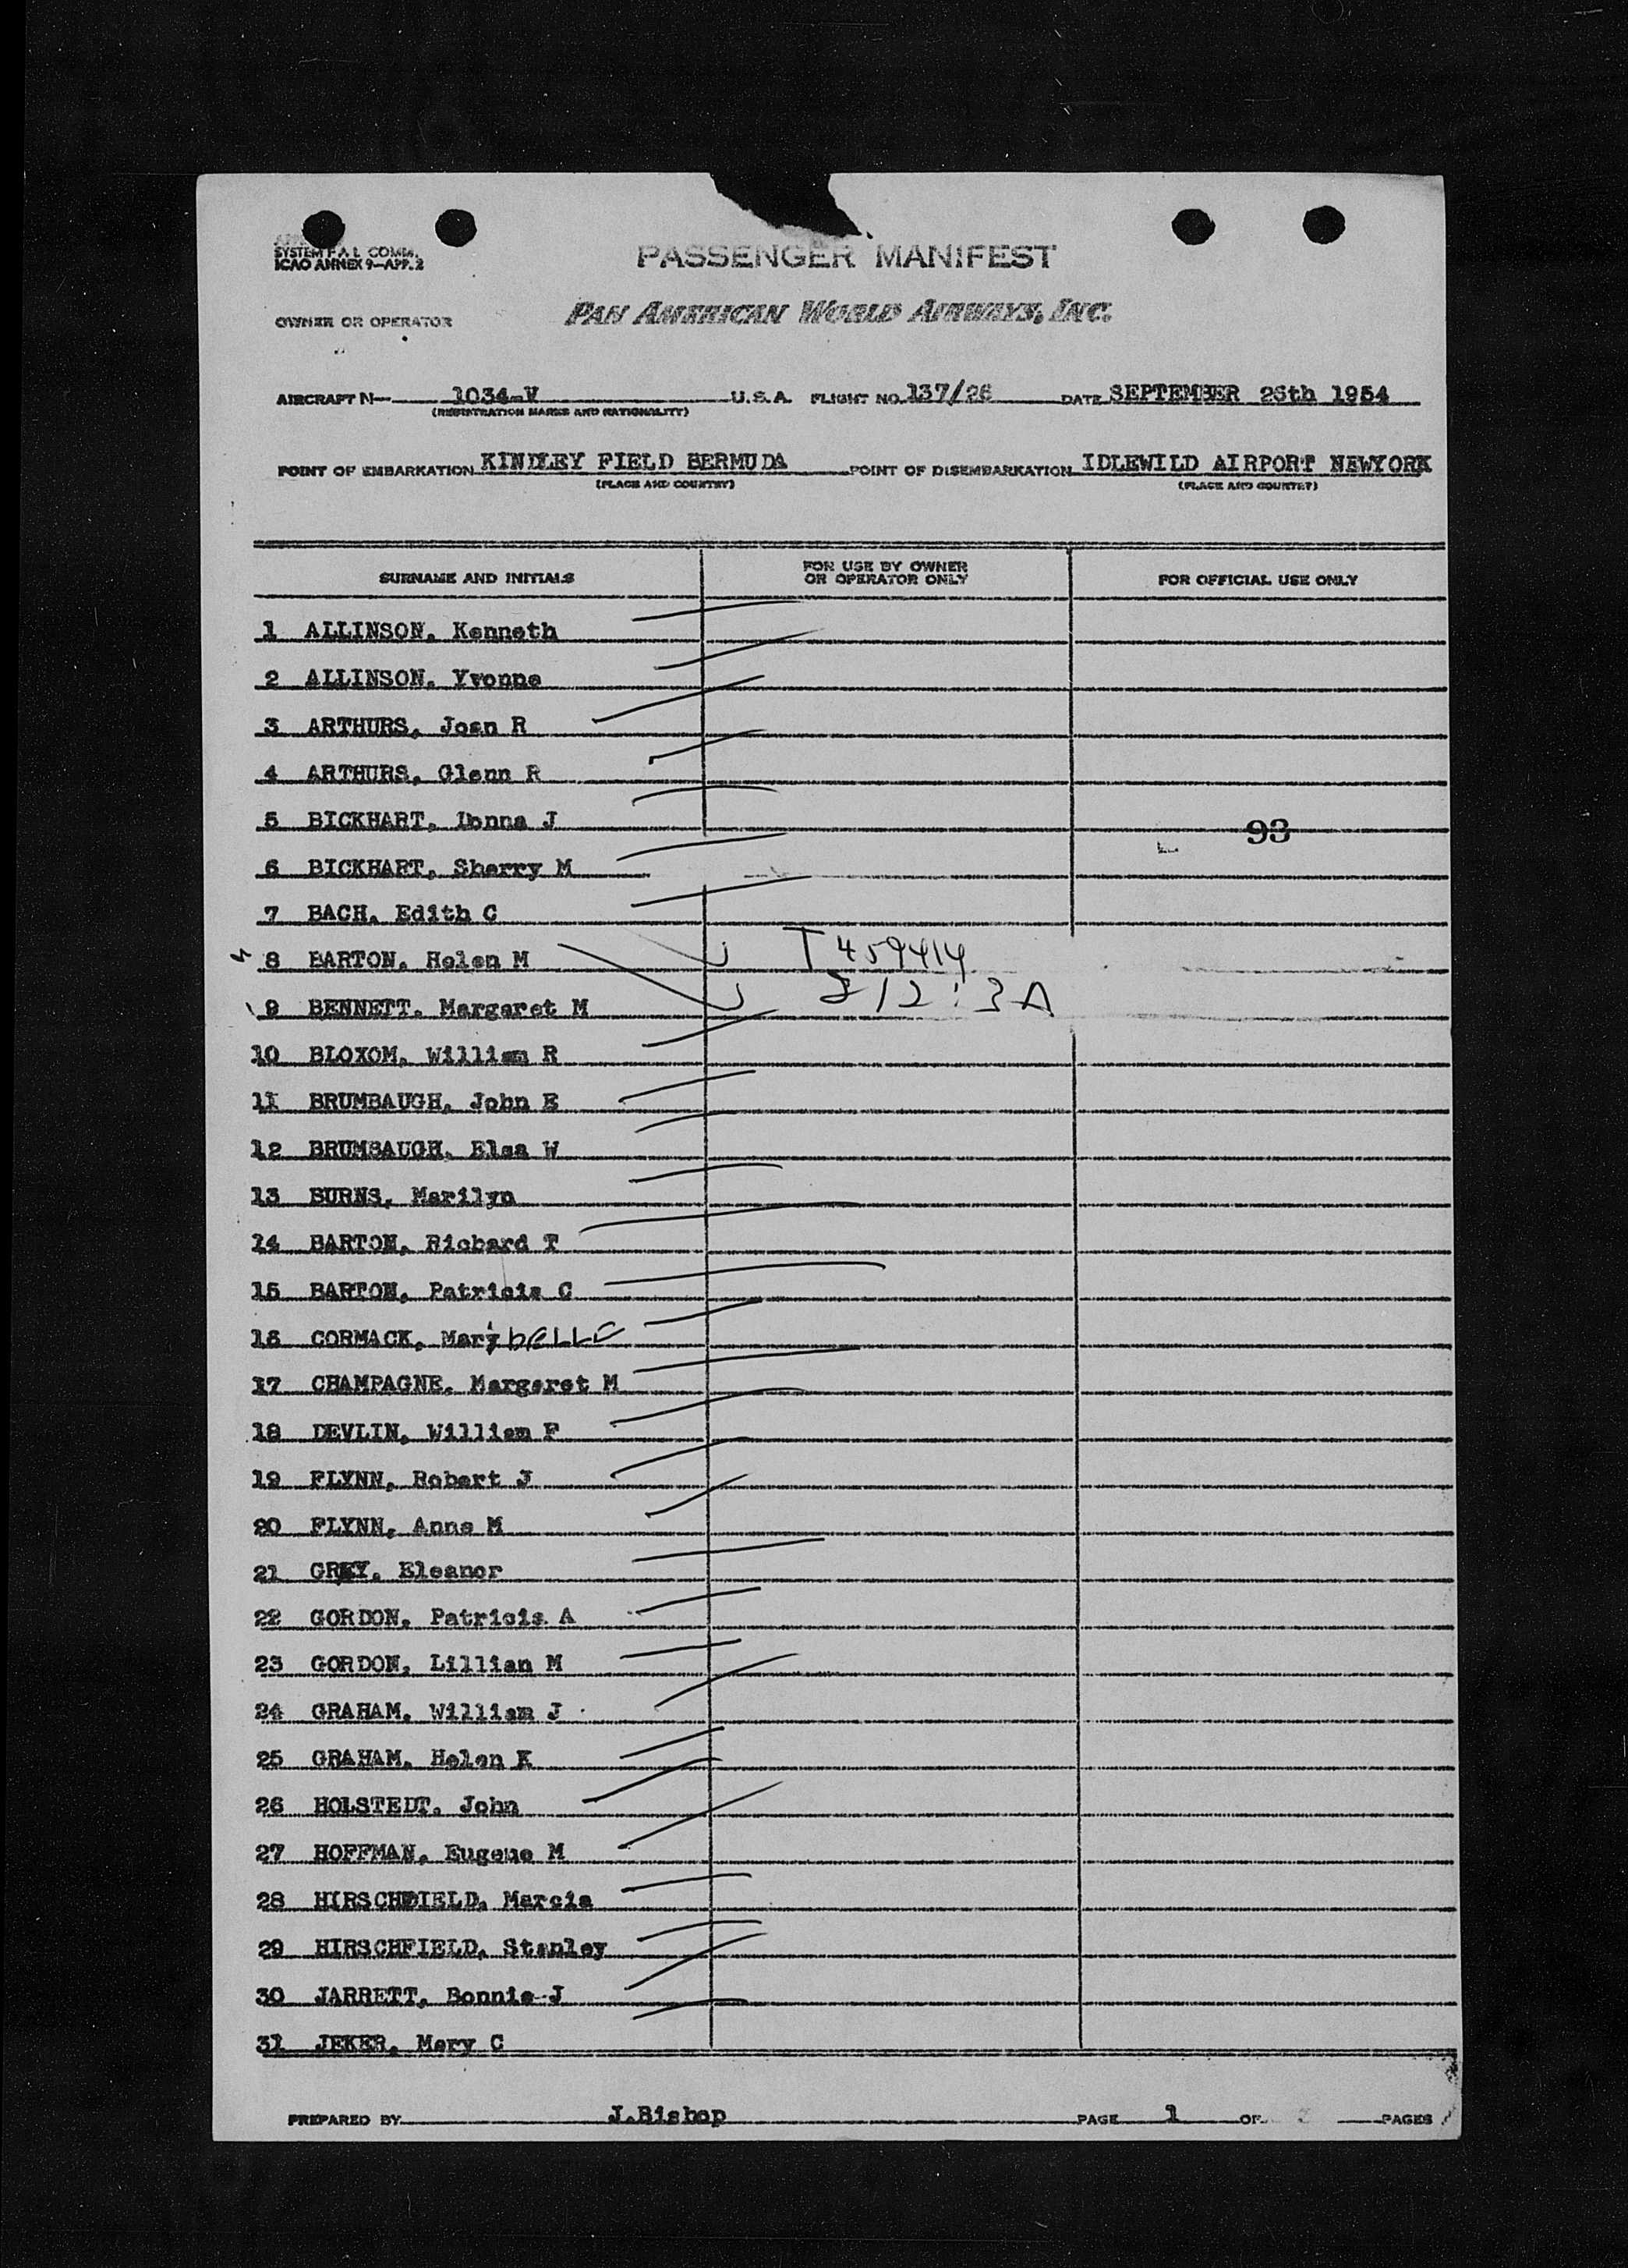 SYSTEM F.A.L. COMM.
ICAO ANNEX 9—APP. 2
PASSENGER MANIFEST
OWNER OR OPERATOR PAN AMERICAN WORLD AIRWAYS, INC.
AIRCRAFT N— 1034-V U.S.A. FLIGHT NO. 137/26 DATE SEPTEMBER 26th 1954
(REGISTRATION MARKS AND NATIONALITY)
POINT OF EMBARKATION KINDLEY FIELD BERMUDA POINT OF DISEMBARKATION IDLEWILD AIRPORT NEWYORK
(PLACE AND COUNTRY) (PLACE AND COUNTRY)
SURNAME AND INITIALS FOR USE BY OWNER OR OPERATOR ONLY FOR OFFICIAL USE ONLY
1 ALLINSON, Kenneth
2 ALLINSON, Yvonne
3 ARTHURS, Joan R
4 ARTHURS, Glenn R
5 BICKHART, Donna J 93
6 BICKHART, Sherry M
7 BACH, Edith C
8 BARTON, Helen M T 459414
9 BENNETT, Margaret M 812:3A
10 BLOXOM, William R
11 BRUMBAUGH, John E
12 BRUMBAUGH, Elsa W
13 BURNS, Marilyn
14 BARTON, Richard T
15 BARTON, Patricia C
16 CORMACK, Marybelle
17 CHAMPAGNE, Margaret M
18 DEVLIN, William F
19 FLYNN, Robert J
20 FLYNN, Anna M
21 GREY, Eleanor
22 GORDON, Patricia A
23 GORDON, Lillian M
24 GRAHAM, William J
25 GRAHAM, Helen K
26 HOLSTEDT, John
27 HOFFMAN, Eugene M
28 HIRSCHFIELD, Marcia
29 HIRSCHFIELD, Stanley
30 JARRETT, Bonnie J
31 JEKER, Mary C
PREPARED BY J.Bishop PAGE 1 OF 3 PAGES